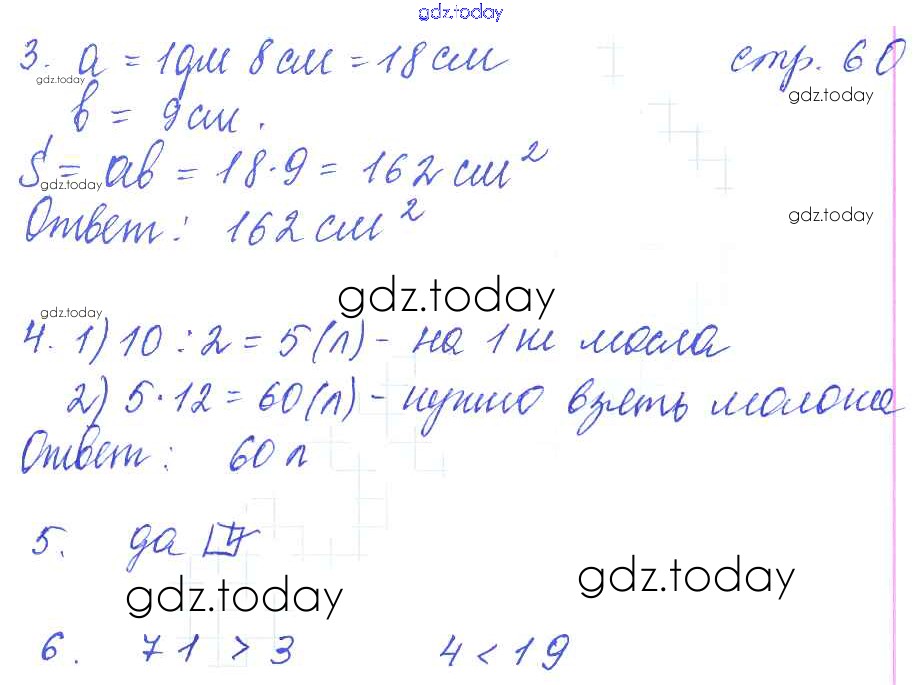 gdz.today
3. a = 1дм 8см = 18см стр. 60
gdz.today
gdz.today
b = 9см.
S = ab = 18·9 = 162 см²
gdz.today
Ответ: 162 см²
gdz.today
gdz.today
gdz.today
4. 1) 10 : 2 = 5 (л) - на 1 кг масла
2) 5·12 = 60 (л) - нужно взять молока
Ответ: 60 л
5. да
gdz.today
gdz.today
6. 71 > 3 4 < 19